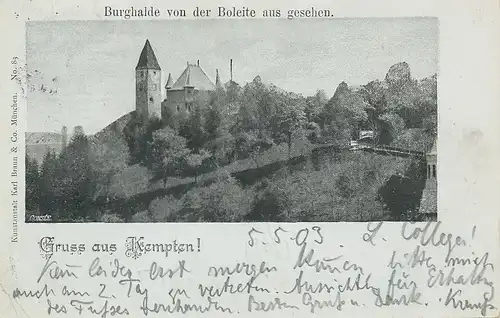 Burghalde von der Boleite aus gesehen.
Kunstanstalt Karl Braun & Co. München. No. 83
Gruss aus Kempten!
5.5.03
L. College!
Kann leider erst morgen kommen bitte mich
auch am 2. Tag zu vertreten. Aussicht für Erhaltg
des Fußes vorhanden. Besten Gruß u. Dank.